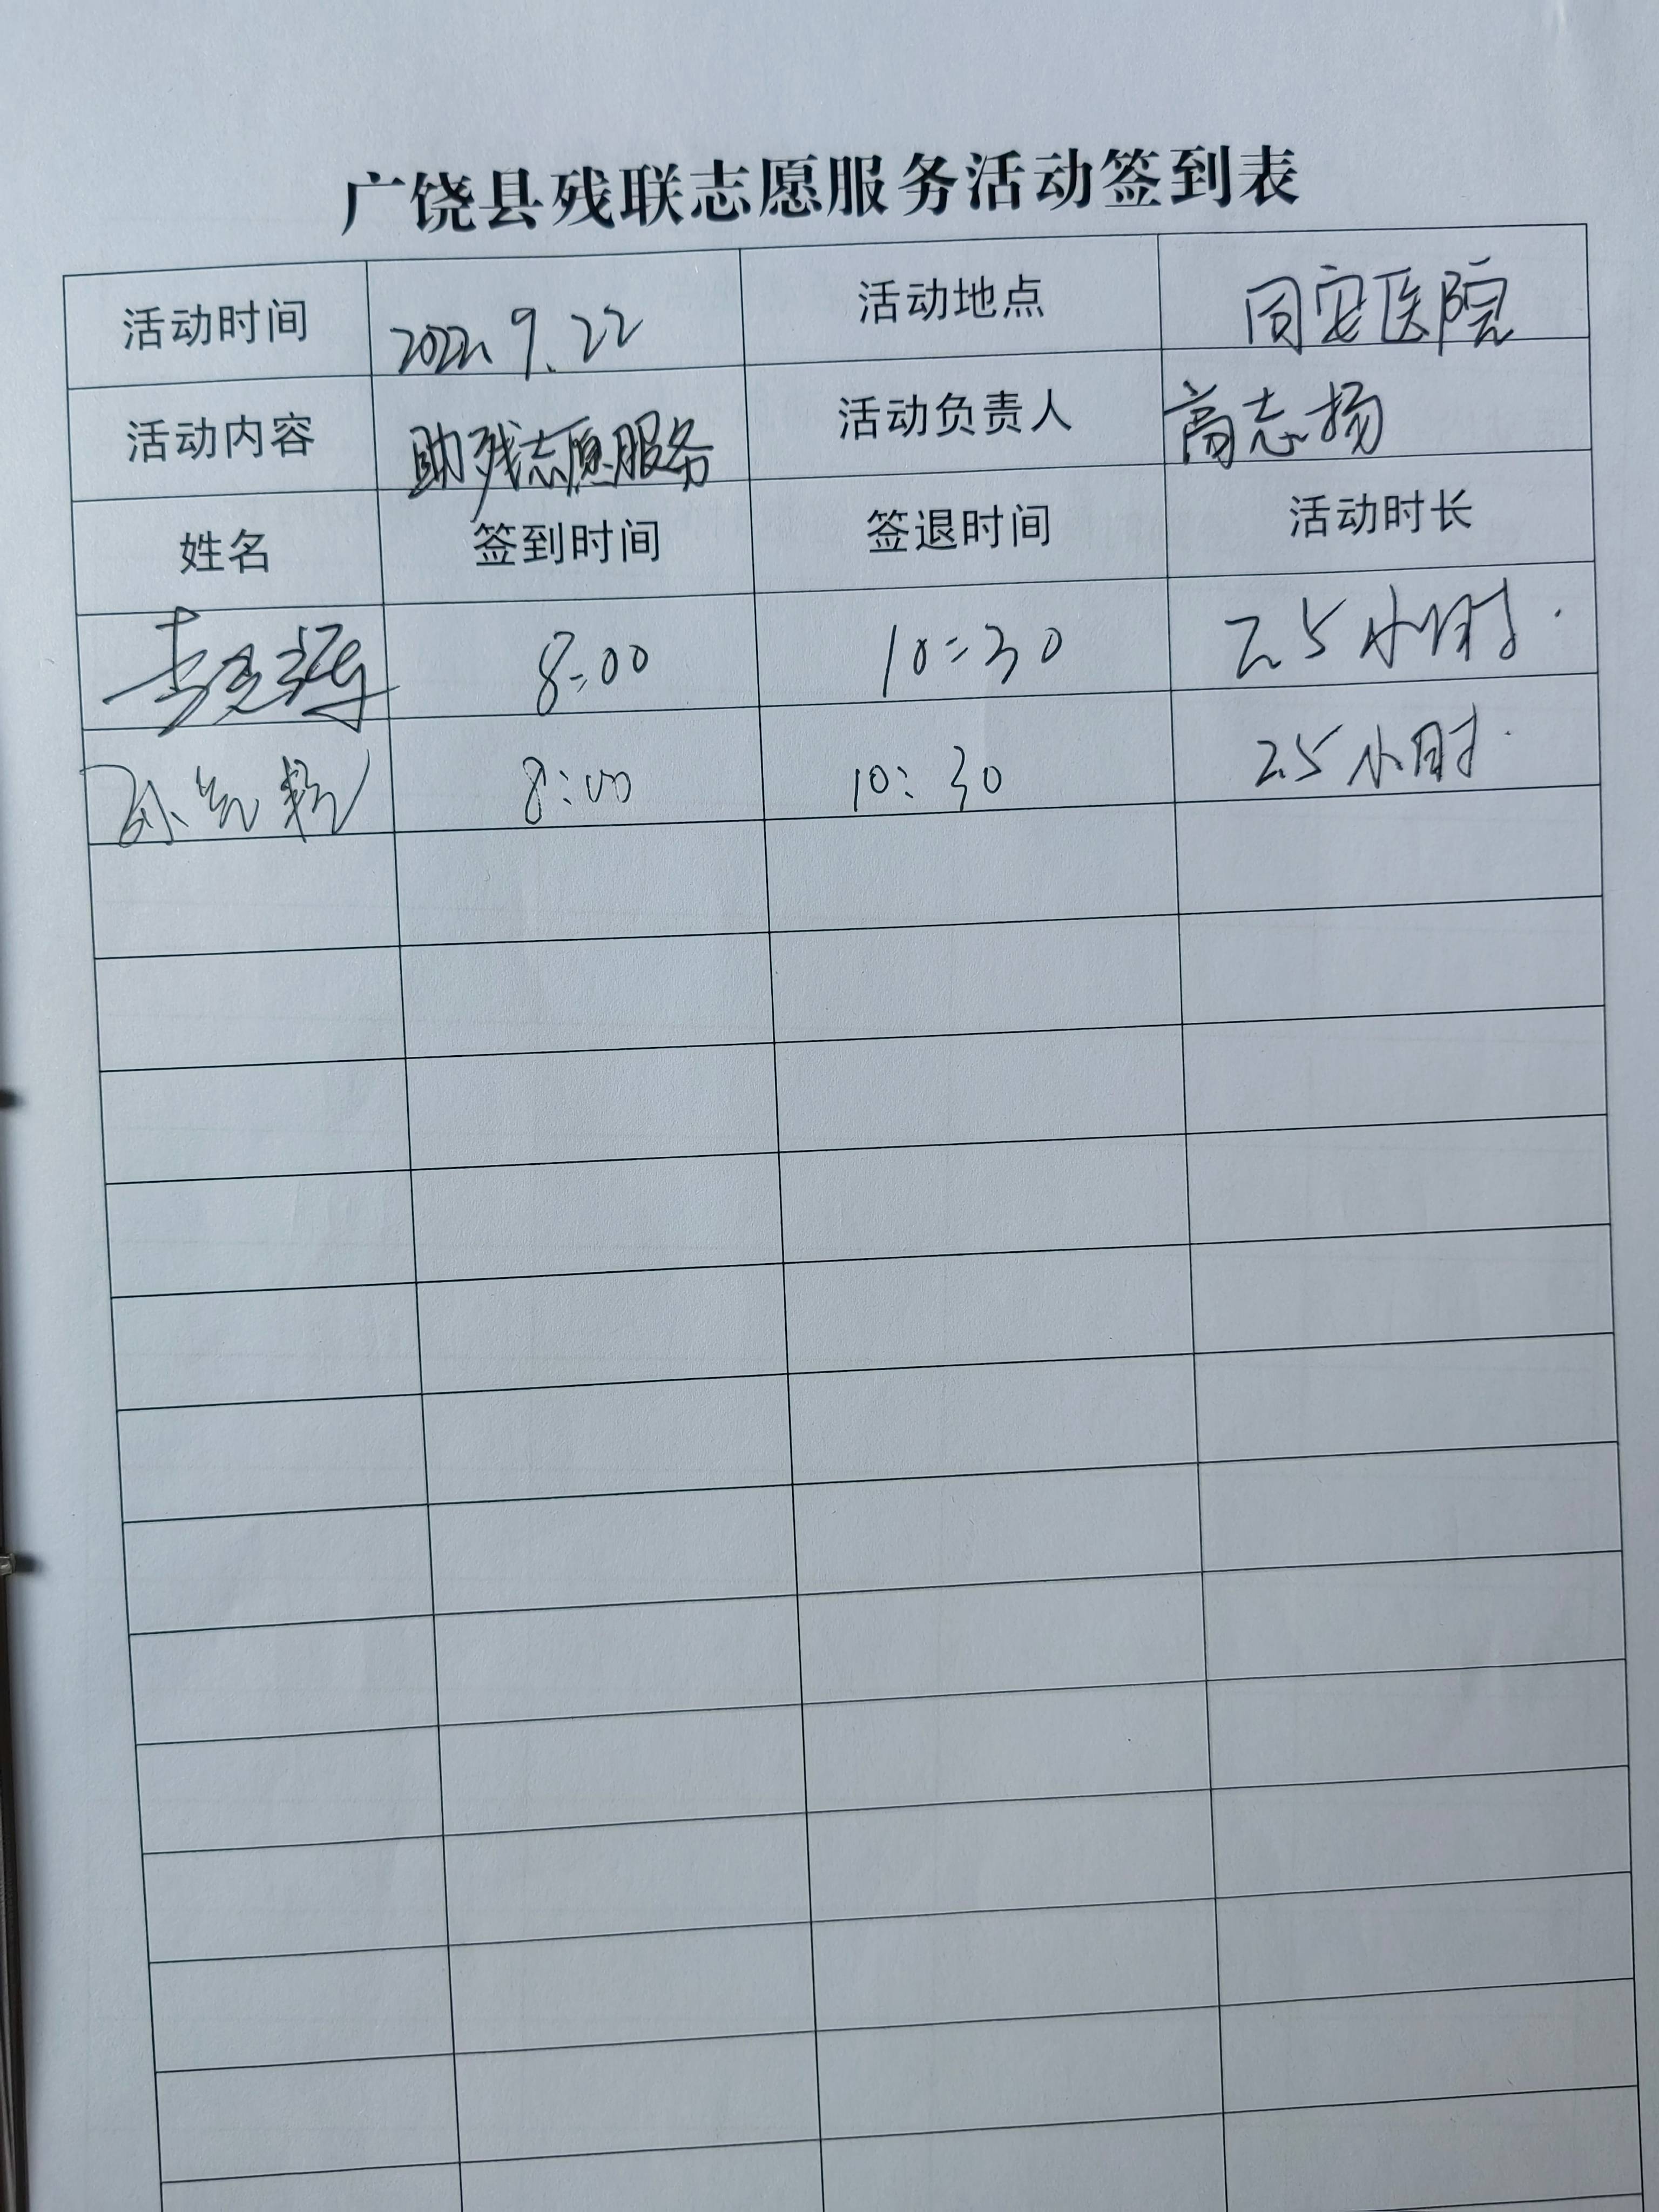 广饶县残联志愿服务活动签到表
活动时间 2022.9.22 活动地点 同安医院
活动内容 助残志愿服务 活动负责人 高志扬
姓名 签到时间 签退时间 活动时长
8:00 10:30 2.5小时.
8:00 10:30 2.5小时.